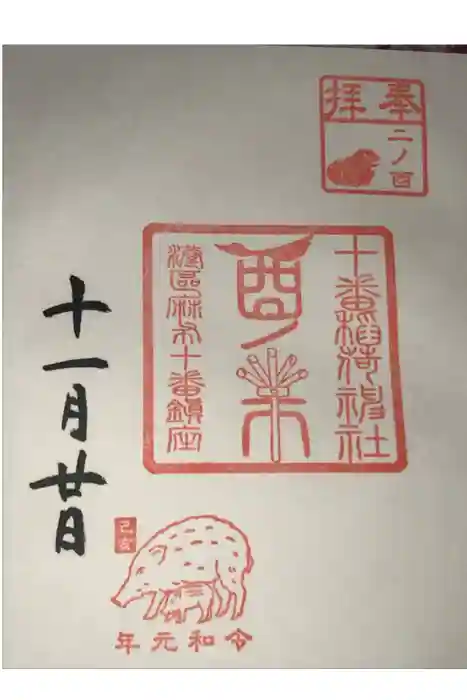 奉拝
二ノ酉
十番稲荷神社
酉ノ市
港區麻布十番鎮座
十一月廿日
己亥
令和元年